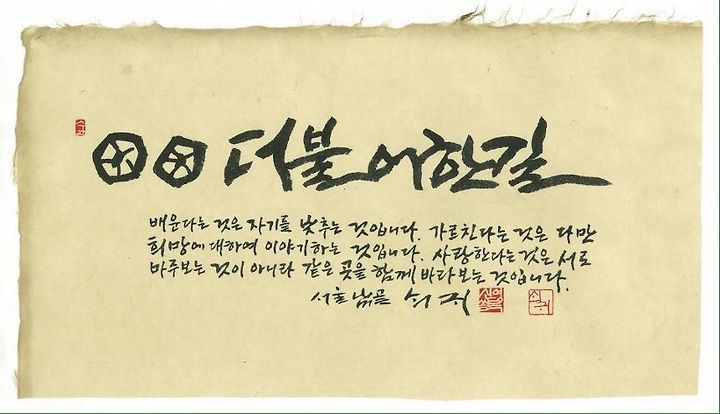 더불어한길
배운다는 것은 자기를 낮추는 것입니다. 가르친다는 것은 다만
희망에 대하여 이야기하는 것입니다. 사랑한다는것은 서로
마주보는 것이 아니라 같은 곳을 함께 바라보는 것입니다.
서호